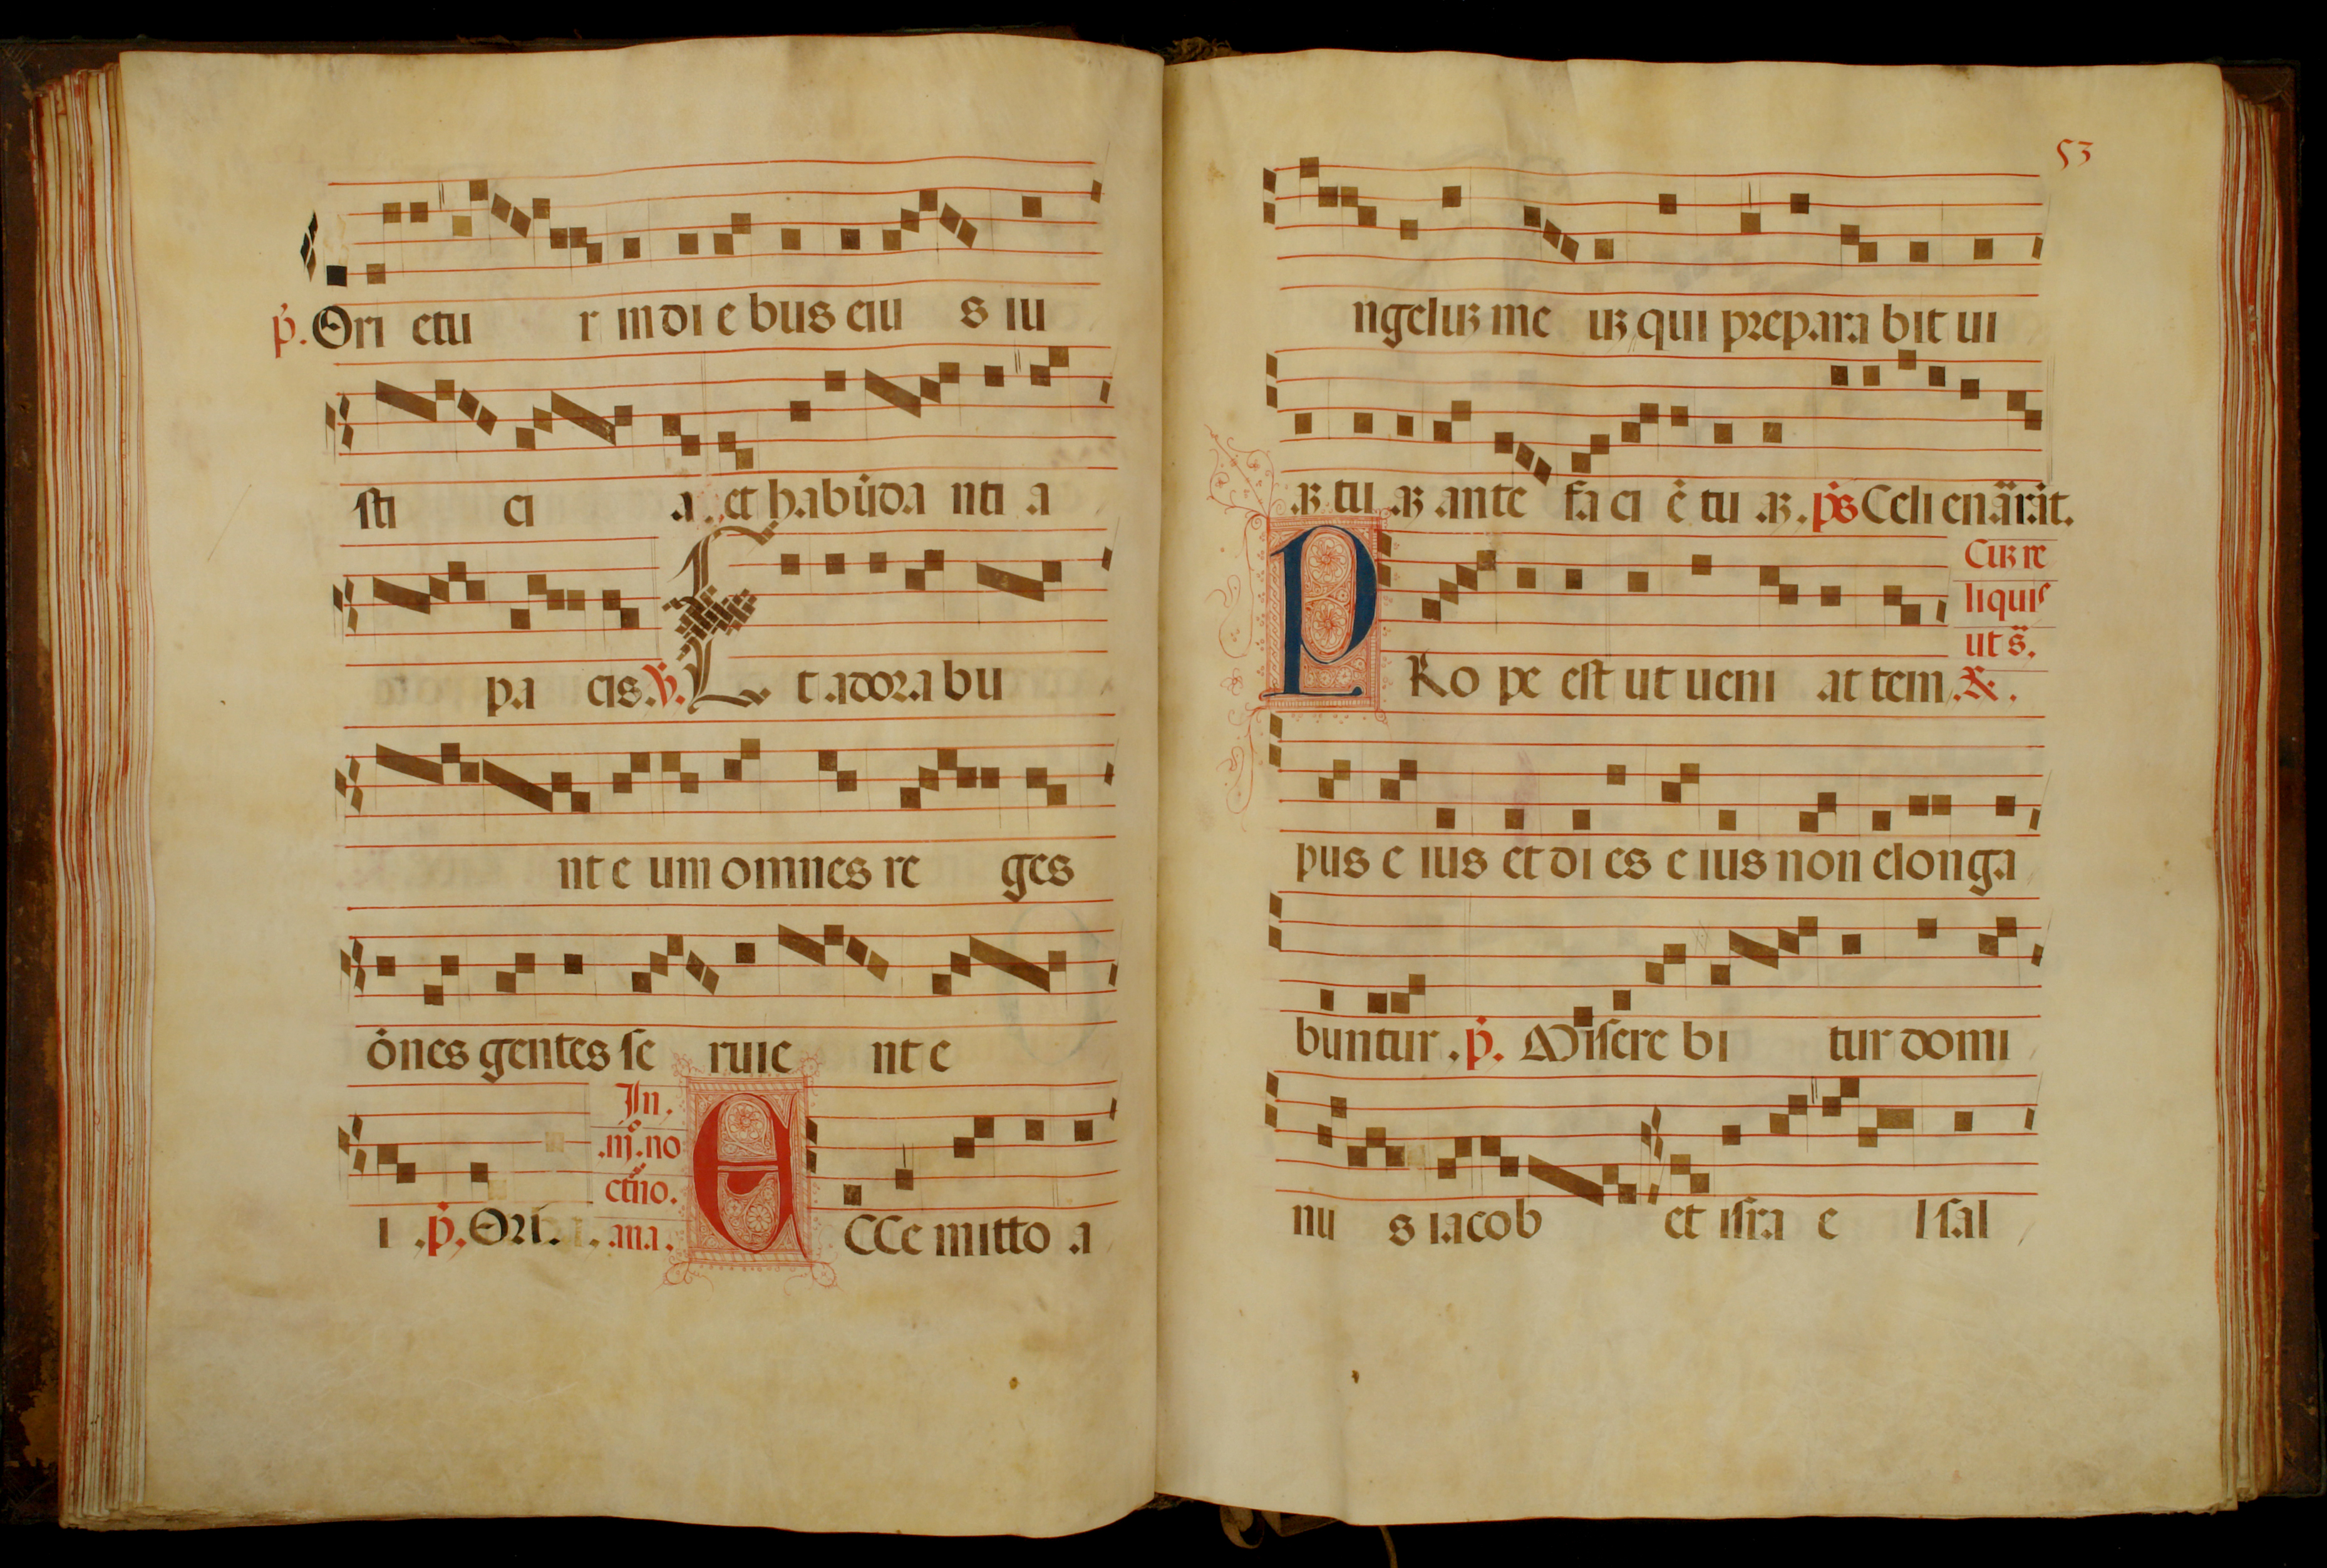 p̃. Ori etu r in di e bus eiu s iu
sti ci a et habũda nti a
pa cis. ℣. Et adora bu
nt e um omnes re ges
õnes gentes se ruie nt e
In
.iij. no
ctũo.
i .p̃. Ori. ana. ECCe mitto a
53
ngeluʒ me uʒ qui prepara bit ui
aʒ tu aʒ ante fa ci ẽ tu aʒ. p̃s Celi enãrãt.
Cuʒ re
liquis
ut s̃.
PRo pe est ut ueni at tem. ℟.
pus e ius et di es e ius non elonga
buntur. p̃. Misere bi tur domi
nu s iacob et isra e l sal